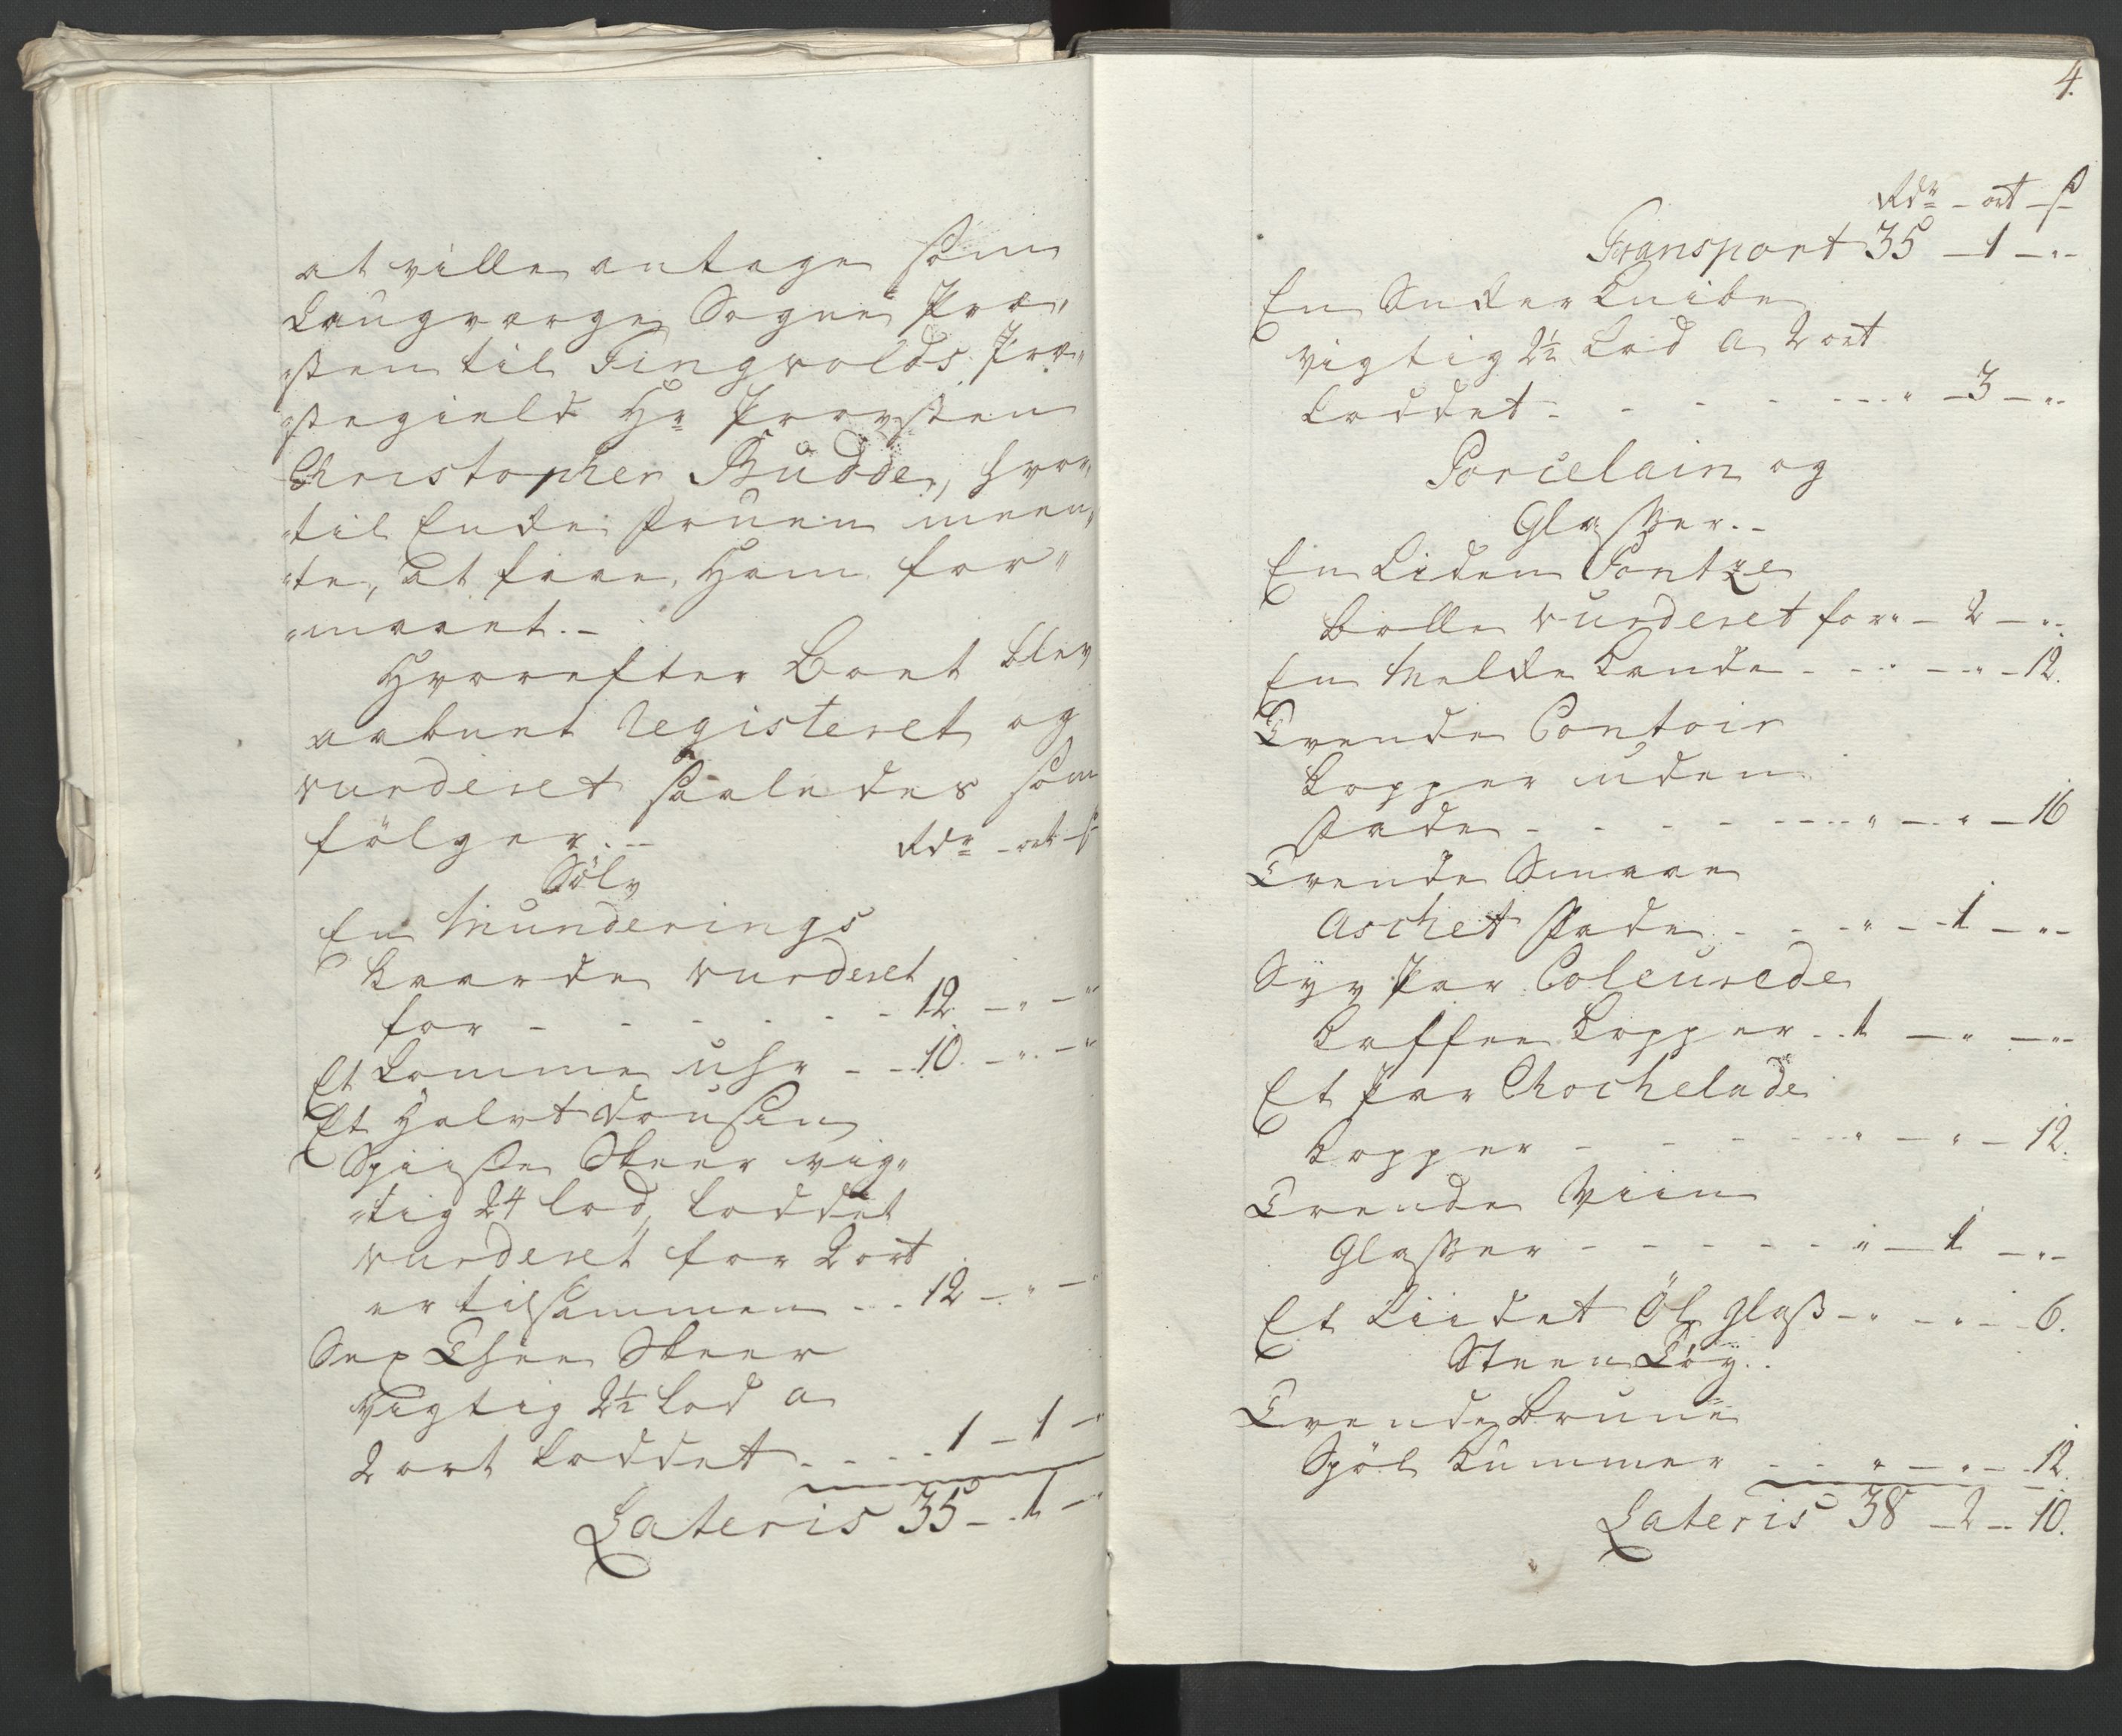 at ville antage som
Laugværge Sogne Præ,,
,,sten til Tingvolds Præ,,
,,stegield Hr Provsten
Christopher Budde, hvor,,
,,til Ende Fruen meen,,
,,te, at faae Ham for,,
,,maaet.-
Hvorefter Boet blev
aabnet Registeret og
vurderet saaledes som
følger.-
Rdr - ort - s
Sølv
En Munderings
Kaarde vurderet
for - - - - - - 12. - " - "
Et Lomme Uhr - - 10. - " - "
Et Halvt Dousin
Spiise Skeer vig,,
,,tig 24 lod, Loddet
vurderet for 2 ort
er tilsammen - - 12 - " - "
Sex Thee Skeer
Vigtig 2½ Lod a
2 ort Loddet - - - - 1 - 1 - "
Lateris 35 - 1 - "
4.
Rdr - ort - s
Transport 35 - 1 - "
En Sukker Kniibe
vigtig 1½ Lod a 2 ort
Loddet - - - - - - " - 3 - "
Porcelain og
Glasser.-
En Liden Pontze
Bolle vurderet for " - 2 - "
En Melke Kande - - " - " - 12.
Tvende Contoir
Kopper uden
Fade - - - - - - " - " - 16
Tvende Smaae
Aschet Fade - - - " - 1 - "
Syv Par Coleurede
Kaffee Kopper - 1 - " - "
Et Par Chochelade
Kopper - - - - - " - " - 12.
Trende Viin
Glasser - - - - - - " - 1 - "
Et Liidet Öl Glass - " - " - 6.
Steen Töy..
Tvende Brune
Spöl Kummer - - " - " - 12.
Lateris 38 - 2 - 10.